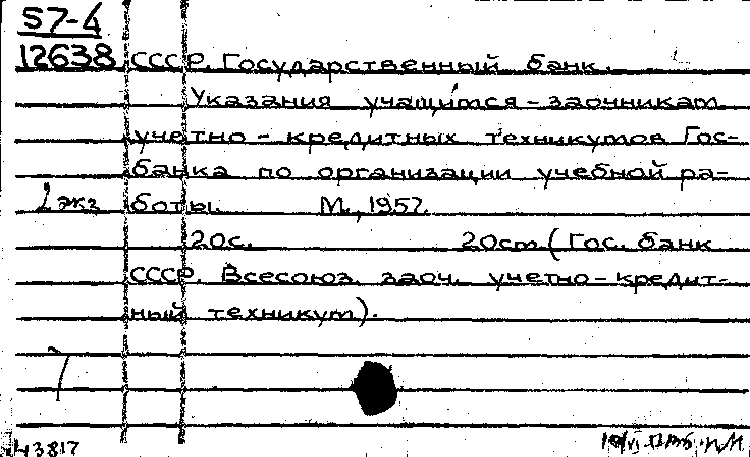 57-4
12638 СССР. Государственный банк.
Указания учащимся-заочникам
учетно-кредитных техникумов Гос-
банка по организации учебной ра-
2 экз боты. М., 1957.
20с. 20см (Гос. банк
СССР. Всесоюз. заоч. учетно-кредит-
ный техникум).
43817